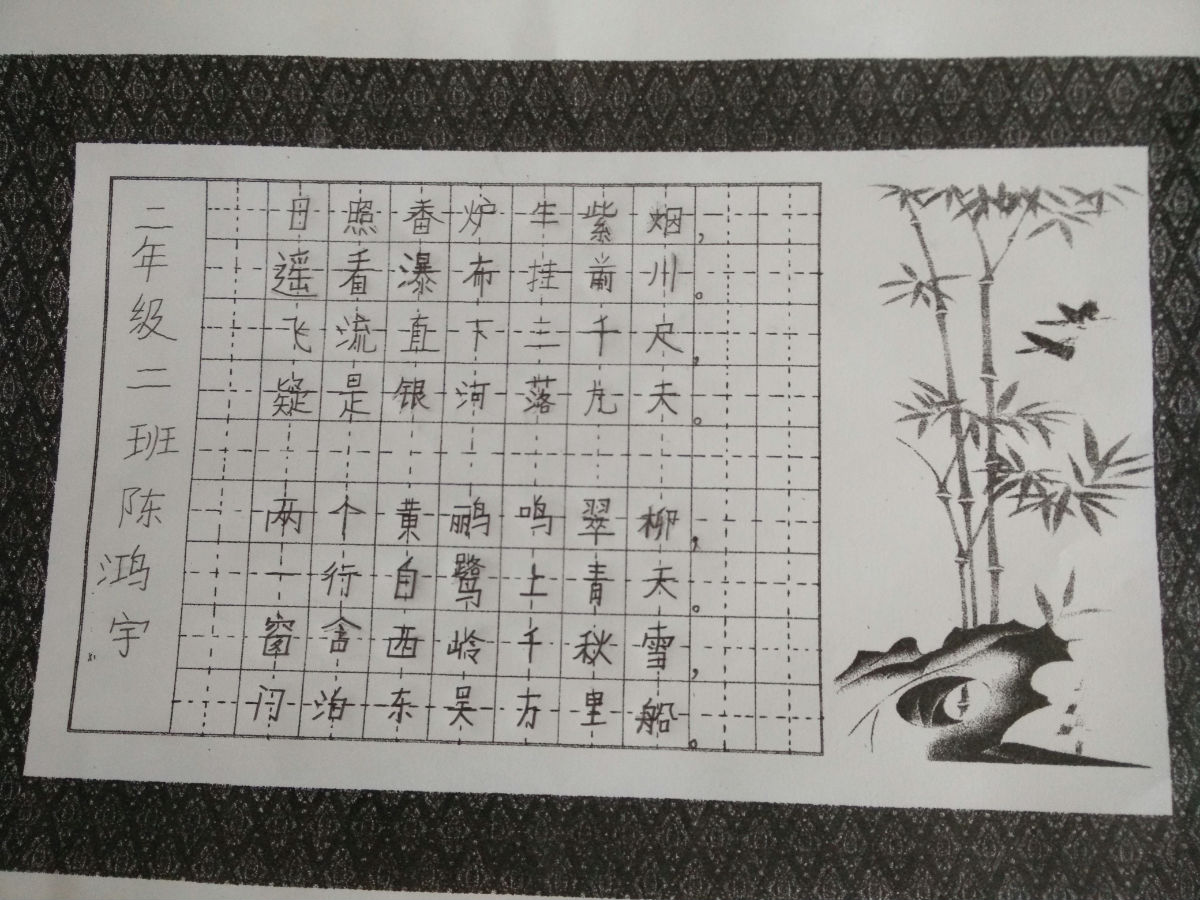 二年级二班陈鸿宇
日照番炉生紫烟，
遥看瀑布挂前川。
飞流直下三千尺，
疑是银河落九天。
两个黄鹂鸣翠柳，
一行自鹭上青天。
窗含西岭千秋雪，
门泊东吴方里船。